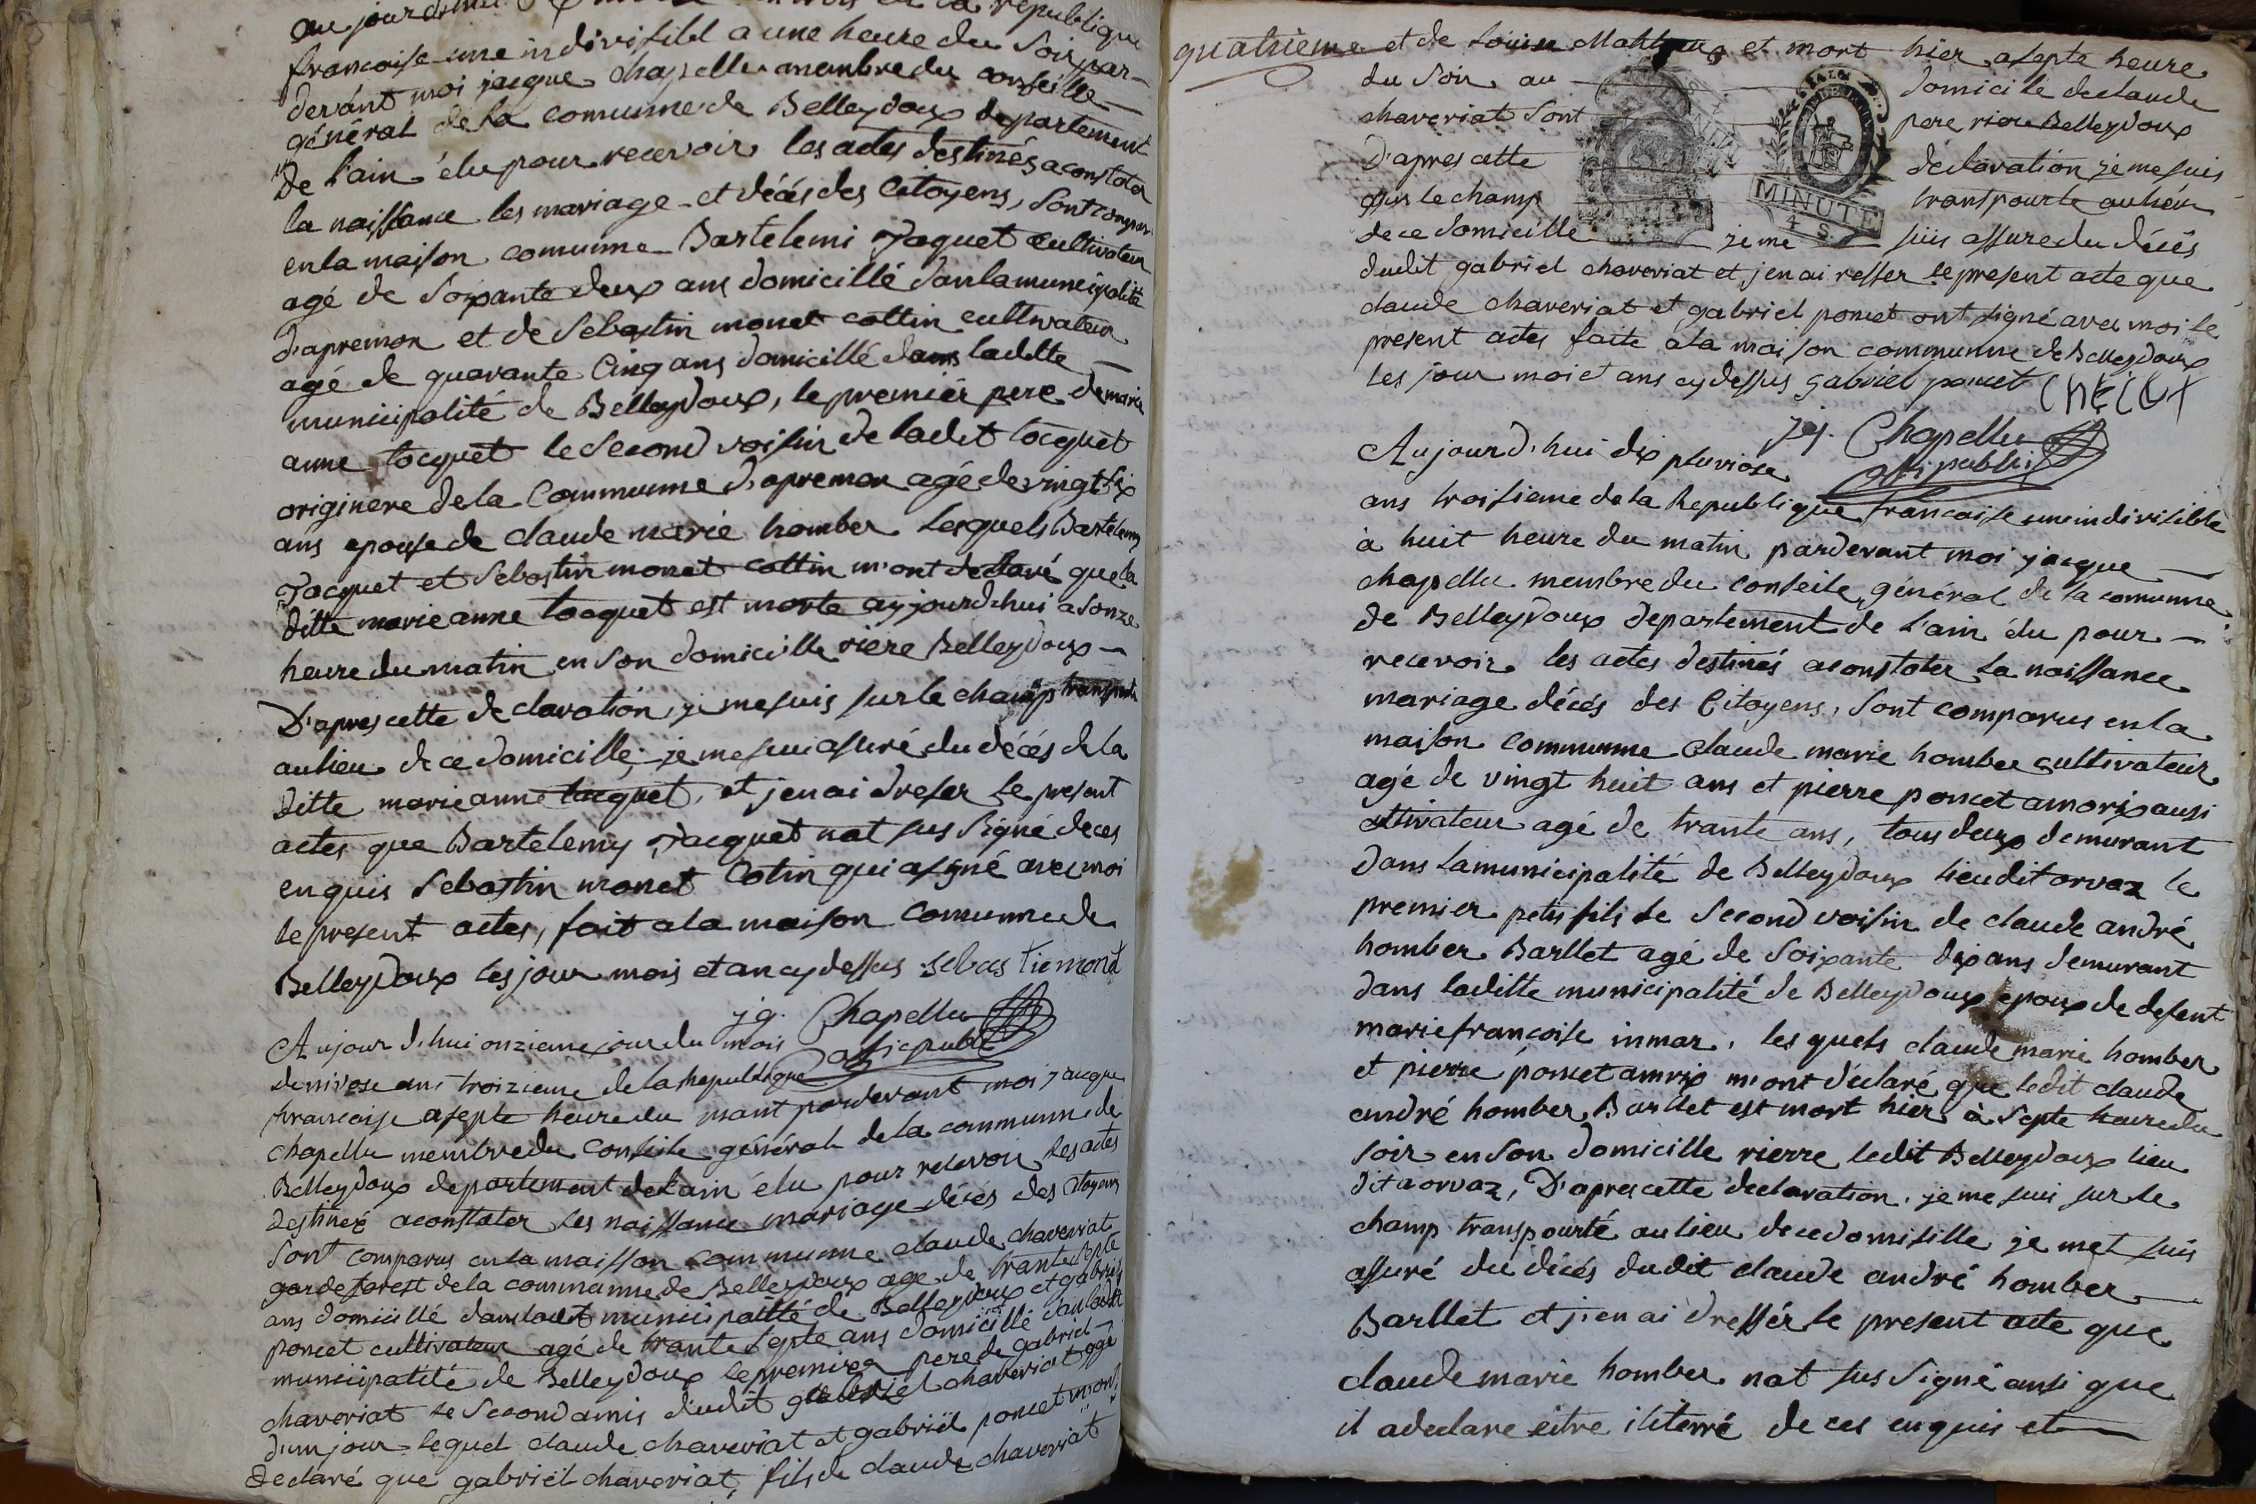 francaise une indivisibl a une heure du Soir par-
devant moi jacque chapellu membre du conseille
général de la comunne de Belleydoux departement
de l'ain élu pour recevoir les actes destinés a constater
la naissance les mariage et décés des Citoyens, Sont compar
en la maison comunne Bartelemi Jaquet cultivateur
agé de Soixante deux ans domicillé dans la municipalité
d'apremon et de Sebastin monet cottin cultivateur
agé de quarante Cinq ans domicillé dans ladite
municipalité de Belleydoux, le premier pere de marie
anne Jocquet le Second voisin de ladit Jocquet
originere de la Commune d'apremon agé de vingt six
ans epouse de claude marie homber lesquels Bartelemy
Jacquet et Sebastin monet cottin m'ont declaré que la
ditte marie anne Jocquet est morte ayjourdhui a onze
heure du matin en Son domicille riere Belleydoux
D'apres cette declaration, je me suis sur le champ transporté
au lieu de ce domicille, je me sui assuré du décés de la
ditte marie anne Jacquet, et j'en ai dreser le present
actes que Bartelemy Jacquet nat sus Signé de ces
enquis Sebastin monet Cotin qui a signé avec moi
le present actes, fait a la maison comunne de
Belleydoux les jour mois et an cy dessus sebas tie monet
jq. Chapellu
Aujour d'hui onzieme jour du mois offic publi
de nivose ans troizieme de la Republique
francaise a septe heure du mant pardevant moi jacque
chapellu membre du conseile général de la commune de
Belleydoux departement de l'ain élu pour recevoir les actes
destinés a constater les naissance mariage décés des Citoyens
Sont comparus en la maison communne claude chaveriat
garde forest de la commune de Belleydoux age de trante septe
ans domicillé dans ladit municipalité de Belleydoux et gabriel
poncet cultivateur agé de trante septe ans domicillé dans ladit
municipalité de Belleydoux le premier pere de gabriel
chaveriat le Second amis dudit gabriel chaveriat agé
d'un jour lequel claude chaveriat et gabriel poncet m'ont
declaré que gabriel chaveriat, fils de claude chaveriat
quatrieme et de Louise et mort hier a septe heure
du Soir au domicile de claude
chaveriat Sont pere riere Belleydoux
D'apres cette déclaration je me suis
sur le champ transpourte au lieu
de ce Domicille je me suis assure du décés
dudit gabriel chaveriat et j'en ai resser le present acte que
claude chaveriat et gabriel poncet ont signé avec moi le
present actes faite a la maison communne de Belleydoux
les jour moi et ans cy dessus gabriel poncet
jq. Chapellu
offi publi
Aujour d'hui dix pluviose
ans troisieme de la Republique francaise une indivisible
à huit heure du matin pardevant moi jacque
chapellu membre du conseile général de la comunne
de Belleydoux departement de l'ain élu pour
recevoir les actes destinés a constater la naissance
mariage décés des Citoyens, Sont comparus en la
maison communne claude marie homber cultivateur
agé de vingt huit ans et pierre poncet amorix ausi
cultivateur agé de trante ans, tous deux demurant
dans la municipalité de Belleydoux lieu dit orvaz le
premier petis fils le Second voisin de claude andré
homber Barllet agé de Soixante dix ans demurant
dans laditte municipalité de Belleydoux epoux de defent
marie francoise inmar, les quels claude marie homber
et pierre poncet amrix m'ont déclaré que ledit claude
andré homber Barllet est mort hier à Septe heure du
soir en Son domicille rierre ledit Belleydoux lieu
dit a orvaz, D'apres cette declaration, je me suis sur le
champ transpourté au lieu de ce domisille je met suis
assuré du décés dudit claude andré homber
Barllet et j'en ai dressér le present acte que
claude marie homber nat sus Signé ausi que
il a declare eitre iliterré de ces enquis et